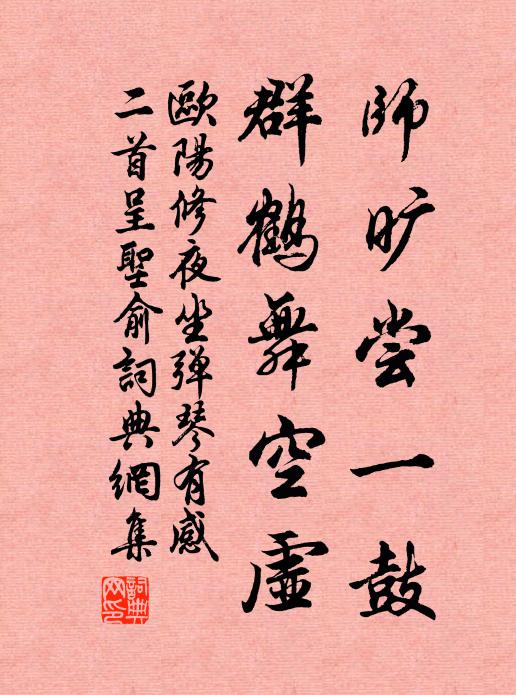 師旷尝一鼓
群鶴舞空虛
歐陽修夜坐弹琴有感
二首呈聖俞詞典網集
詞典网印